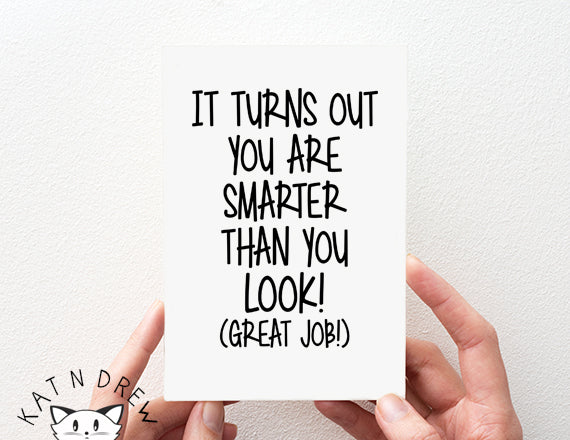 IT TURNS OUT
YOU ARE
SMARTER
THAN YOU
LOOK!
(GREAT JOB!)
KAT N DREW